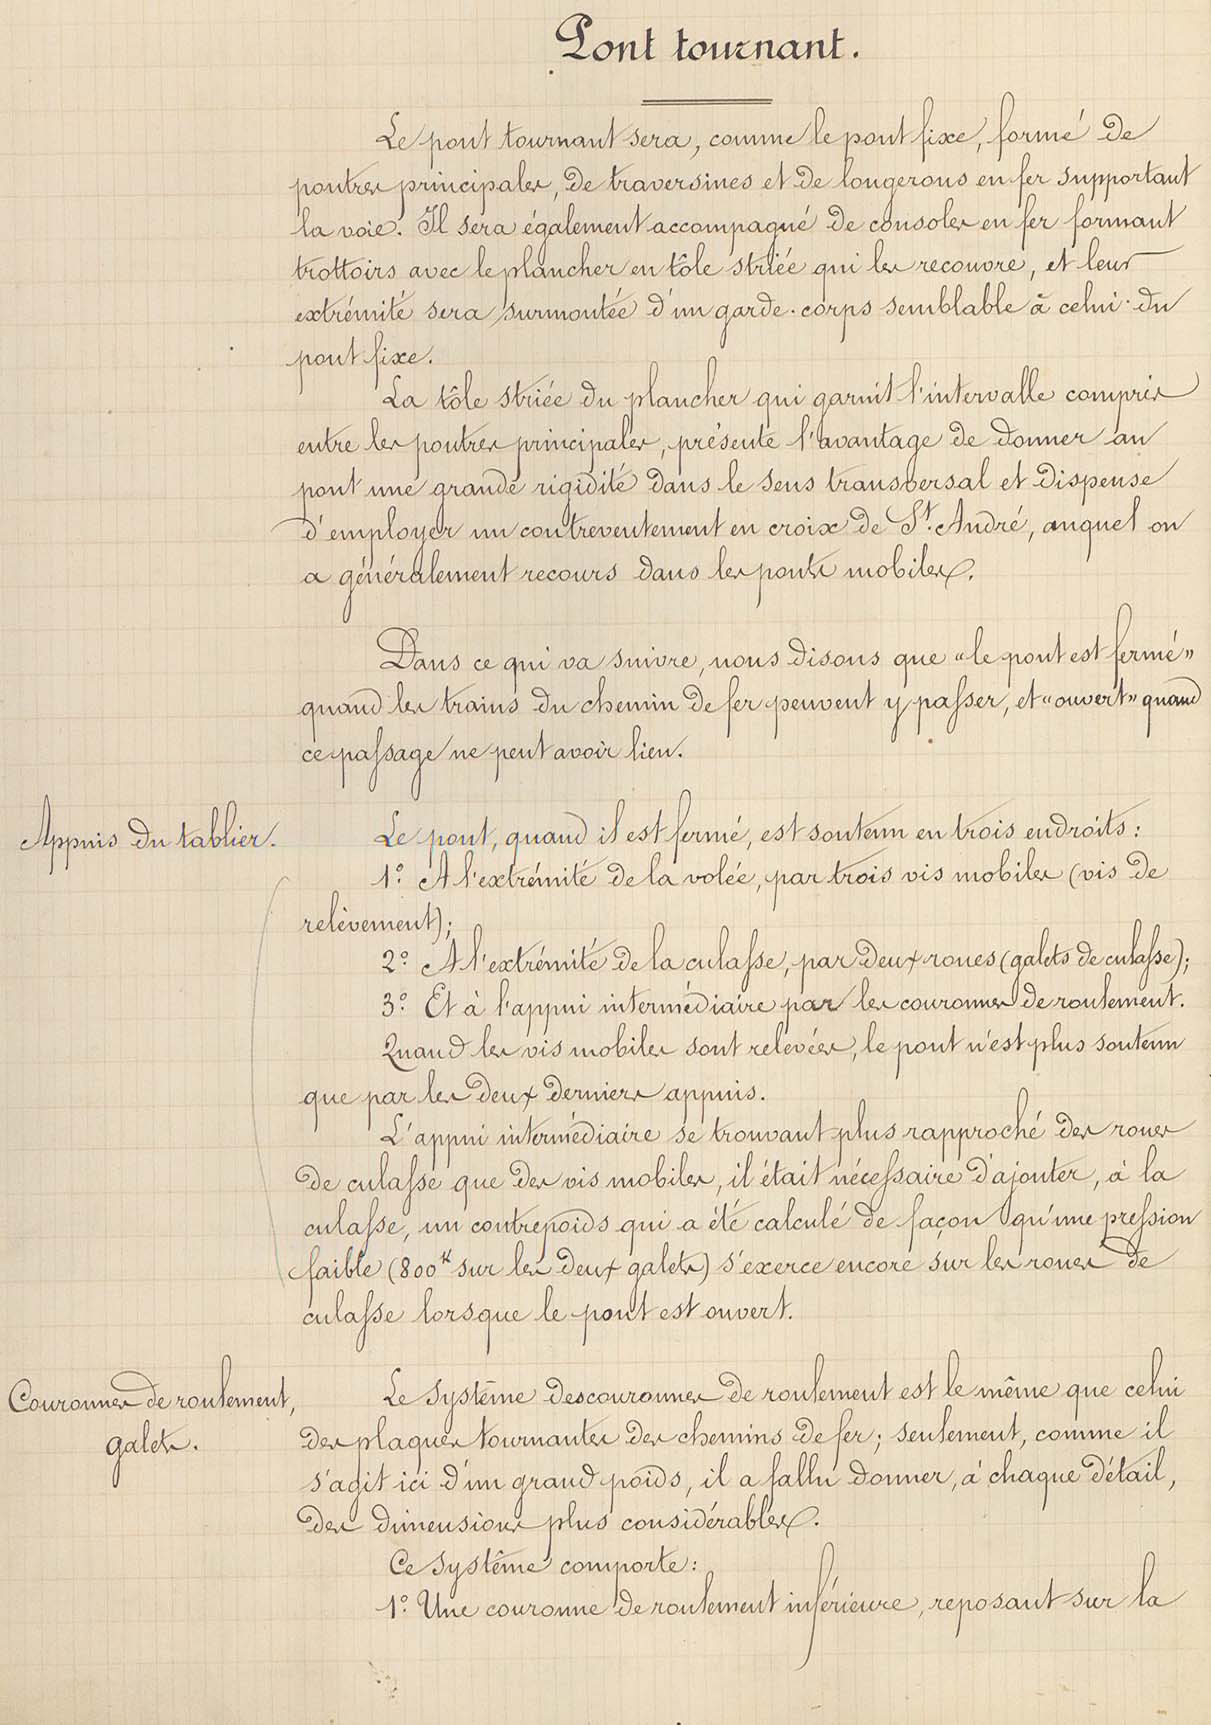 Pont tournant.
Le pont tournant sera, comme le pont fixe, formé de
poutres principales, de traversines et de longerons en fer supportant
la voie. Il sera également accompagné de consoles en fer formant
trottoirs avec le plancher en tôle striée qui les recouvre, et leur
extrémité sera surmontée d'un garde-corps semblable à celui du
pont fixe.
La tôle striée du plancher qui garnit l'intervalle compris
entre les poutres principales, présente l'avantage de donner au
pont une grande rigidité dans le sens transversal et dispense
d'employer un contreventement en croix de St. André, auquel on
a généralement recours dans les ponts mobiles.
Dans ce qui va suivre, nous disons que "le pont est fermé"
quand les trains du chemin de fer peuvent y passer, et "ouvert" quand
ce passage ne peut avoir lieu.
Appuis du tablier.
Le pont, quand il est fermé, est soutenu en trois endroits :
1º. A l'extrémité de la volée, par trois vis mobiles (vis de
relèvement);
2º. A l'extrémité de la culasse, par deux roues (galets de culasse);
3º. Et à l'appui intermédiaire par les couronnes de roulement.
Quand les vis mobiles sont relevées, le pont n'est plus soutenu
que par les deux derniers appuis.
L'appui intermédiaire se trouvant plus rapproché des roues
de culasse que des vis mobiles, il était nécessaire d'ajouter, à la
culasse, un contrepoids qui a été calculé de façon qu'une pression
faible (800k sur les deux galets) s'exerce encore sur les roues de
culasse lorsque le pont est ouvert.
Couronnes de roulement,
galets.
Le système des couronnes de roulement est le même que celui
des plaques tournantes des chemins de fer; seulement, comme il
s'agit ici d'un grand poids, il a fallu donner, à chaque détail,
des dimensions plus considérables.
Ce système comporte :
1º. Une couronne de roulement inférieure, reposant sur la